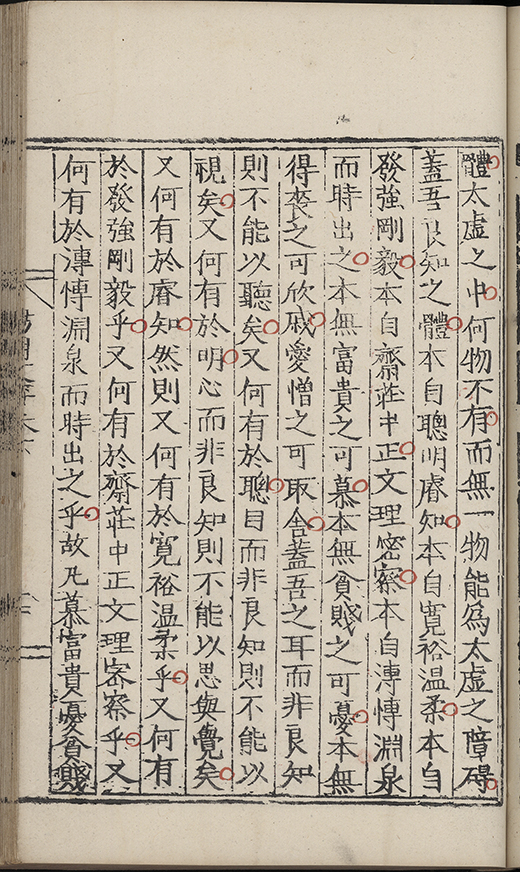 體太虛之中何物不有而無一物能為太虛之障碍
蓋吾良知之體本自聰明睿知本自寬裕溫柔本自
發強剛毅本自齋莊中正文理密察本自溥愽淵泉
而時出之本無富貴之可慕本無貧賤之可憂本無
得喪之可欣戚愛憎之可取舍蓋吾之耳而非良知
則不能以聽矣又何有於聰目而非良知則不能以
視矣又何有於明心而非良知則不能以思與覺矣
又何有於睿知然則又何有於寬裕溫柔乎又何有
於發強剛毅乎又何有於齋莊中正文理密察乎又
何有於溥愽淵泉而時出之乎故凡慕富貴憂貧賤